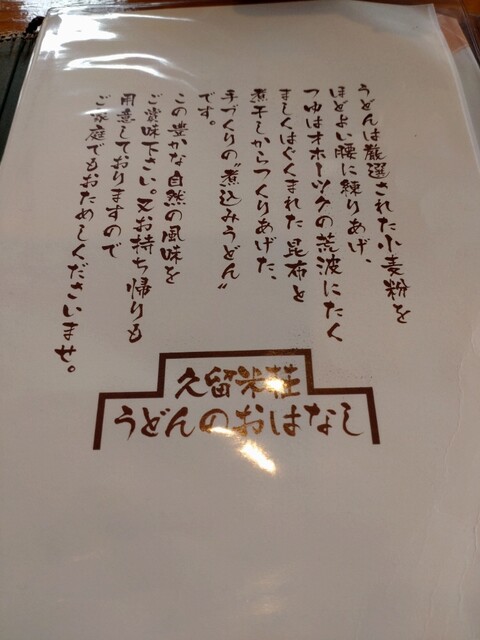 うどんは厳選された小麦粉を
ほどよい腰に練りあげ、
つゆはオホーツクの荒波にたく
ましくはぐくまれた昆布と
煮干しからつくりあげた、
手づくりの〝煮込みうどん〟
です。
この豊かな自然の風味を
ご賞味下さい。又お持ち帰りも
用意しておりますので
ご家庭でもおためしくださいませ。
久留米荘
うどんのおはなし